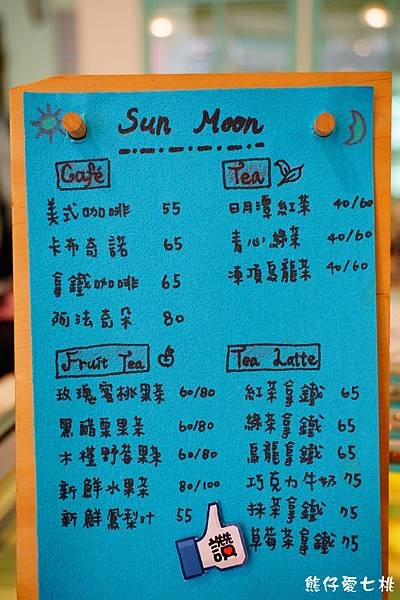 Sun Moon
Café
美式咖啡 55
卡布奇諾 65
拿鐵咖啡 65
阿法奇朵 80
Tea
日月潭紅茶 40/60
青心綠茶 40/60
凍頂烏龍茶 40/60
Fruit Tea
玫瑰蜜桃果茶 60/80
黑醋栗果茶 60/80
木槿野莓果茶 60/80
新鮮水果茶 80/100
新鮮鳳梨汁 55
Tea Latte
紅茶拿鐵 65
綠茶拿鐵 65
烏龍拿鐵 65
巧克力牛奶 75
抹茶拿鐵 75
草莓茶拿鐵 75
讚
熊仔愛七桃